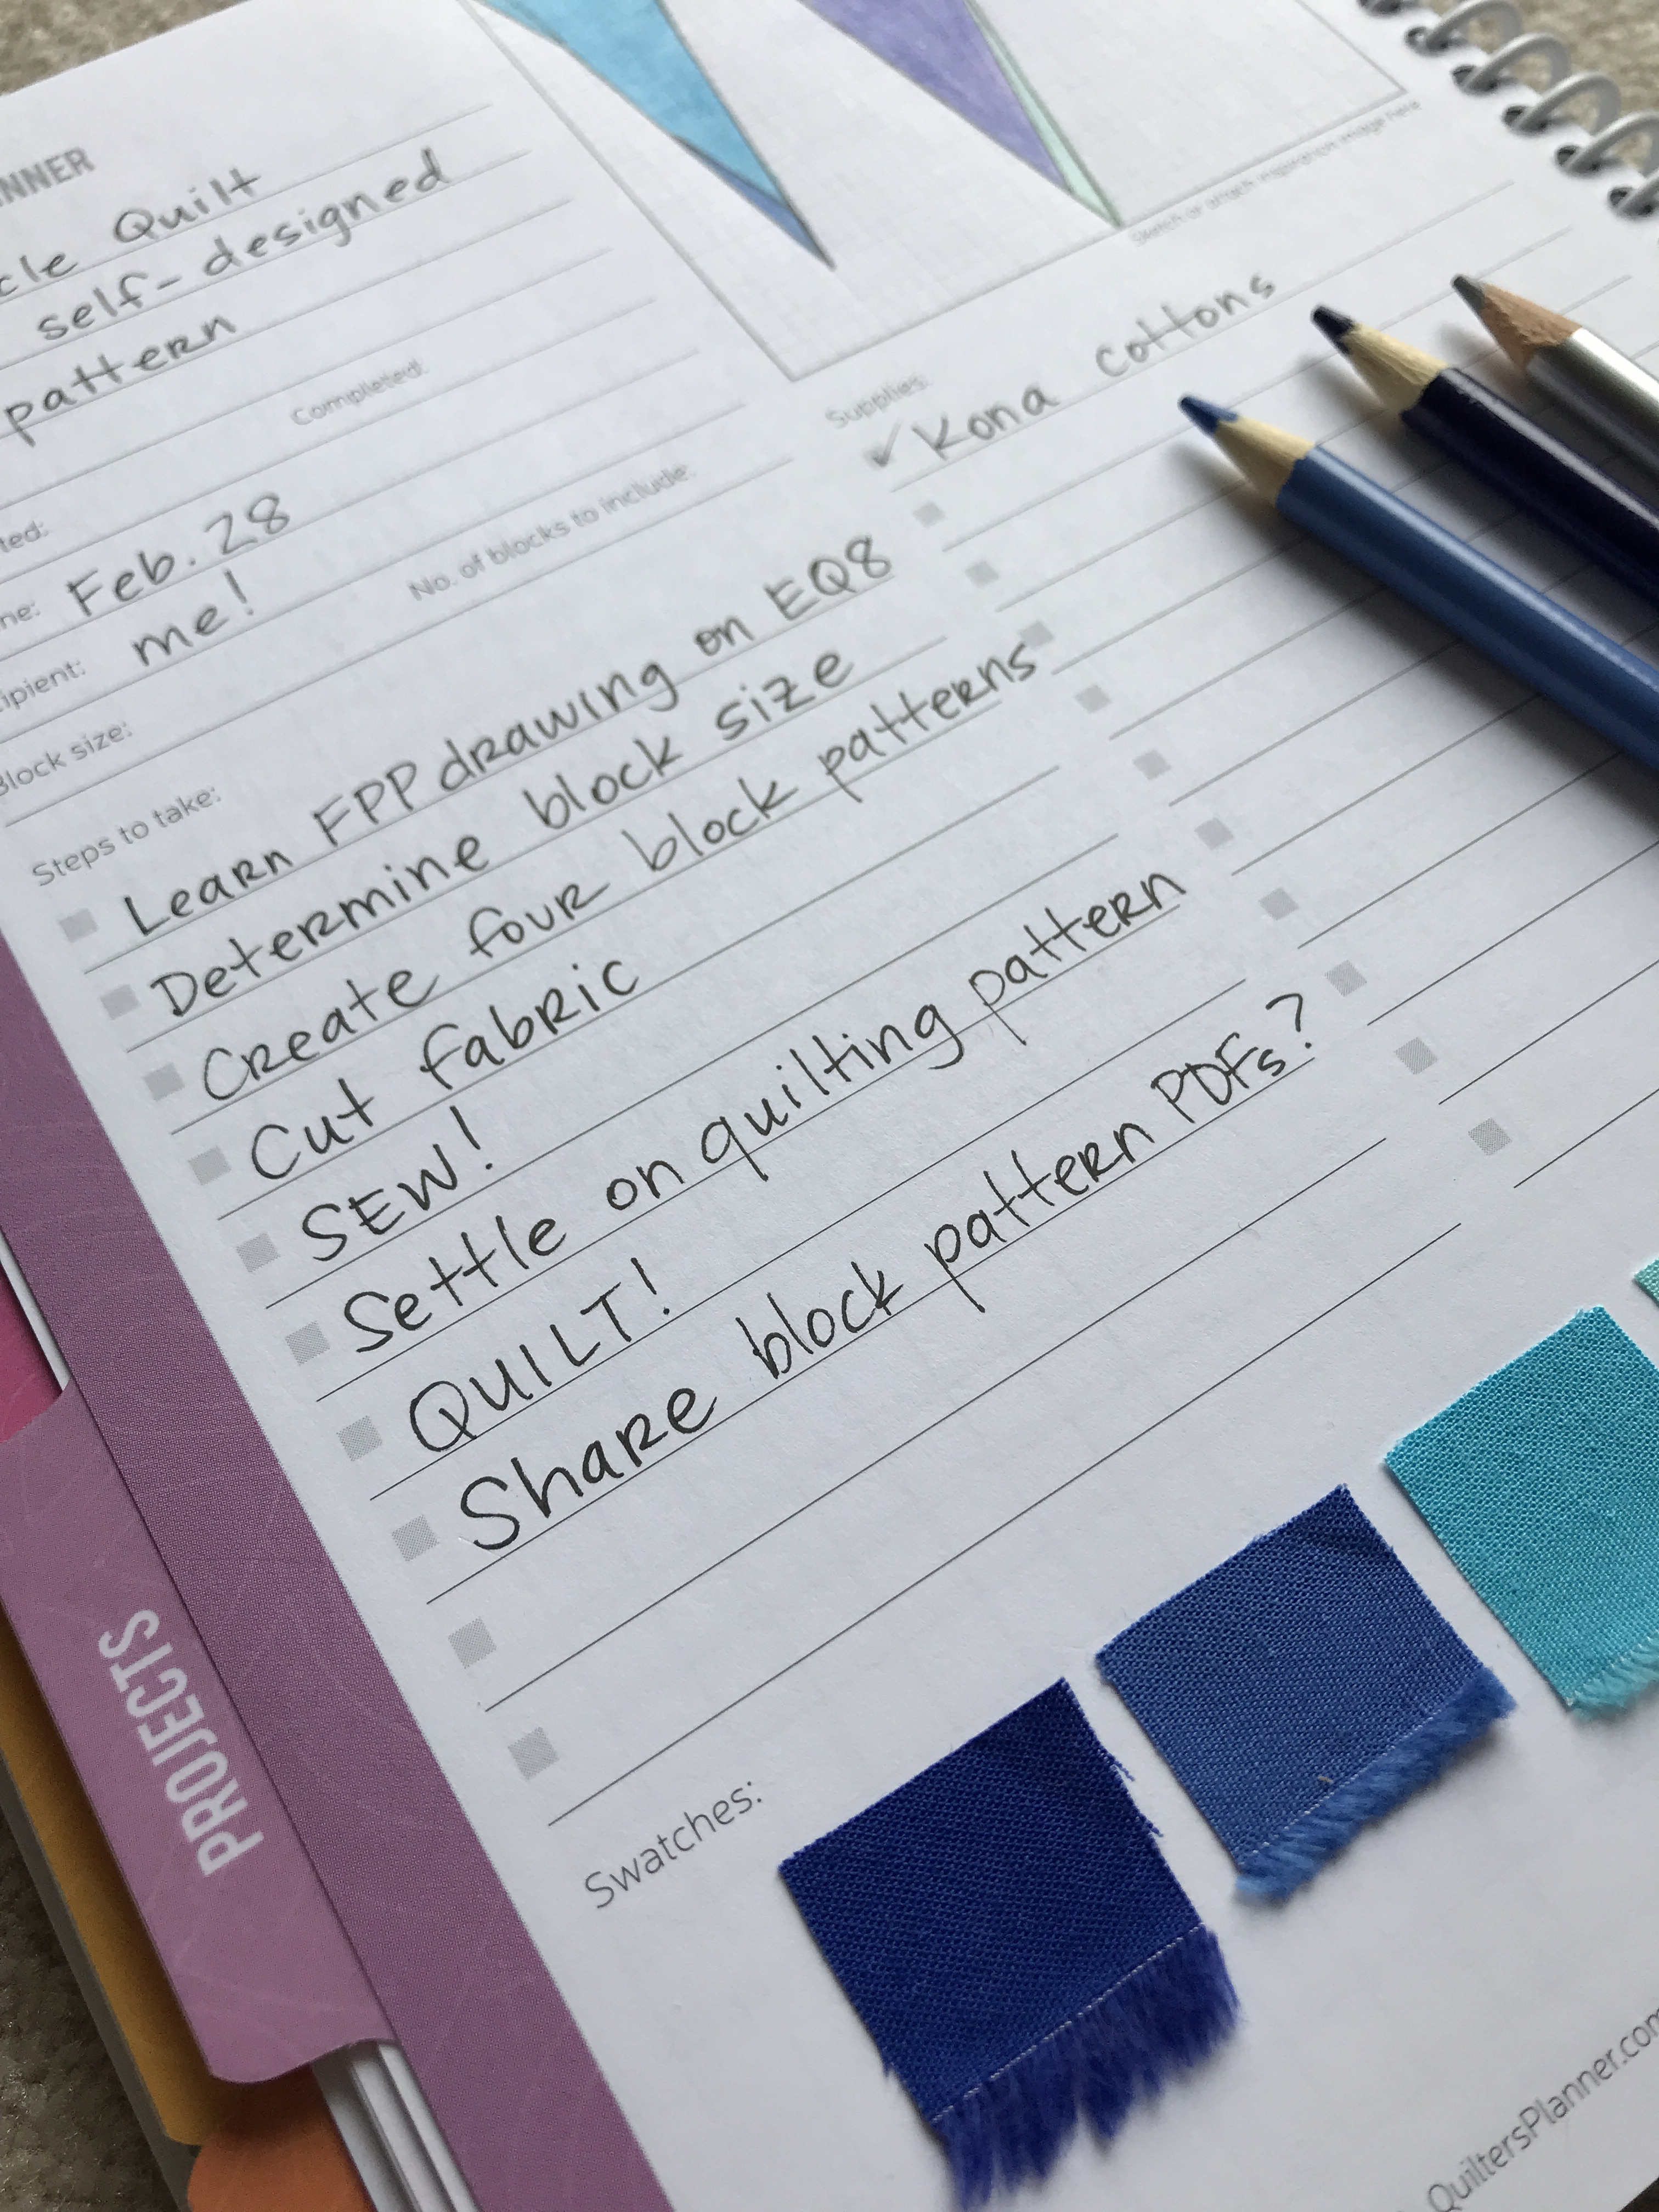 Quilt
self-designed
pattern
Completed:
Feb. 28
me!
No. of blocks to include:
Block size:
Steps to take:
Learn FPP drawing on EQ8
Determine block size
Create four block patterns
Cut fabric
SEW!
Settle on quilting pattern
QUILT!
Share block pattern PDFs?
Sketch or attach inspiration image here
Supplies:
✓ Kona cottons
Swatches:
PROJECTS
QuiltersPlanner.com